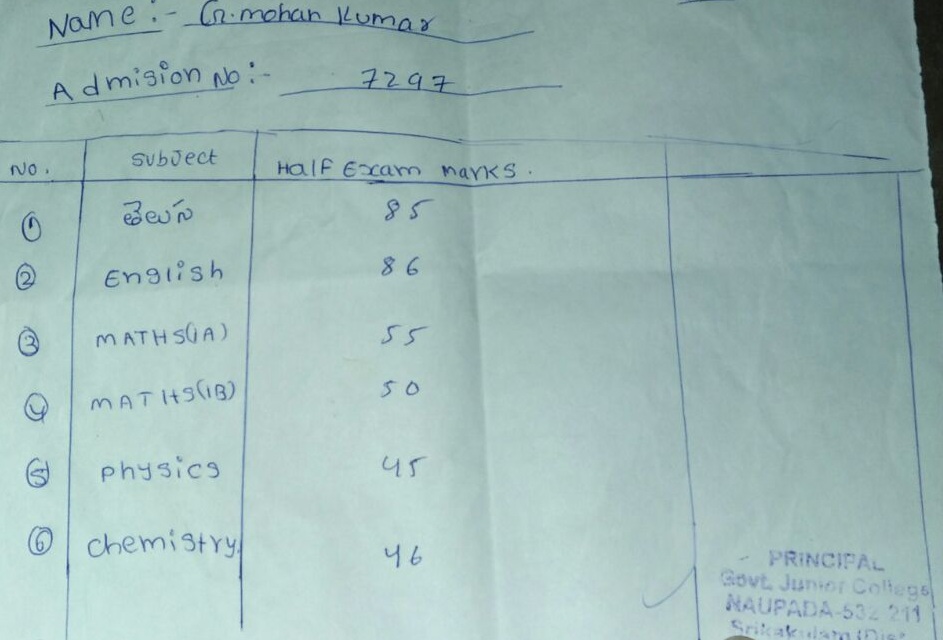 Name :- G.mohan Kumar
Admision No :- 7297
No. Subject Half Exam marks.
① తెలుగు 85
② English 86
③ MATHS(1A) 55
④ MATHS(1B) 50
⑤ physics 45
⑥ chemistry 46
PRINCIPAL
Govt. Junior College
NAUPADA-532 211
Srikakulam (Dist